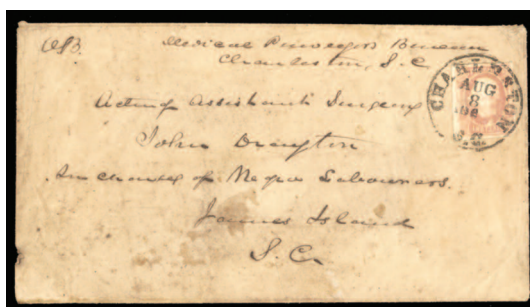 OSB.
Medical Purveyors Bureau
Charleston, S.C.
CHARLESTON
AUG
8
S.C.
Acting Assistant Surgeon
John Drayton
In charge of Negro Labourers.
James Island
S.C.